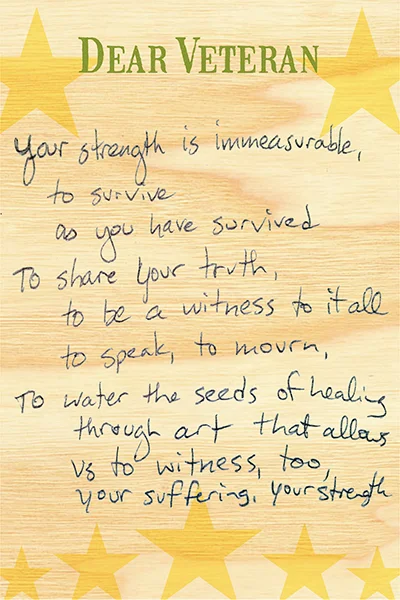 DEAR VETERAN
Your strength is immeasurable,
to survive
as you have survived
To share your truth,
to be a witness to it all
to speak, to mourn,
To water the seeds of healing
through art that allows
us to witness, too,
your suffering, your strength